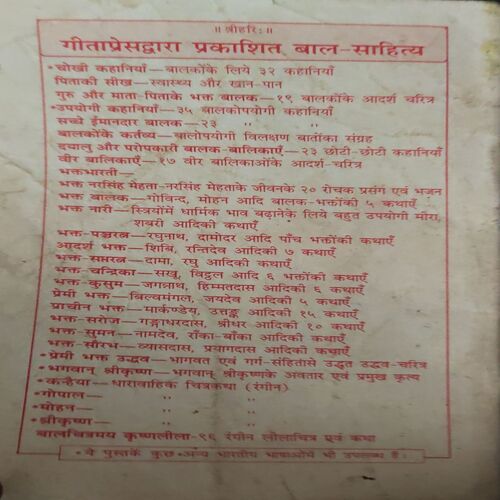 ॥ श्रीहरिः॥
गीताप्रेसद्वारा प्रकाशित बाल-साहित्य
•चोखी कहानियाँ—बालकोंके लिये ३२ कहानियाँ
पिताकी सीख—स्वास्थ्य और खान-पान
गुरु और माता-पिताके भक्त बालक—१९ बालकोंके आदर्श चरित्र
•उपयोगी कहानियाँ—३५ बालकोपयोगी कहानियाँ
सच्चे ईमानदार बालक—२३ " "
बालकोंके कर्तव्य—बालोपयोगी विलक्षण बातोंका संग्रह
दयालु और परोपकारी बालक-बालिकाएँ—२३ छोटी-छोटी कहानियाँ
वीर बालिकाएँ—१७ वीर बालिकाओंके आदर्श-चरित्र
भक्तभारती—
भक्त नरसिंह मेहता-नरसिंह मेहताके जीवनके २० रोचक प्रसंग एवं भजन
भक्त बालक—गोविन्द, मोहन आदि बालक-भक्तोंकी ५ कथाएँ
भक्त नारी—स्त्रियोंमें धार्मिक भाव बढ़ानेके लिये बहुत उपयोगी मीरा,
शबरी आदिकी कथाएँ
भक्त-पञ्चरत्न—रघुनाथ, दामोदर आदि पाँच भक्तोंकी कथाएँ
आदर्श भक्त—शिबि, रन्तिदेव आदिकी ७ कथाएँ
भक्त-सप्तरत्न—दामा, रघु आदिकी कथाएँ
भक्त-चन्द्रिका—सखू, विट्ठल आदि ६ भक्तोंकी कथाएँ
भक्त-कुसुम—जगन्नाथ, हिम्मतदास आदिकी ६ कथाएँ
प्रेमी भक्त—बिल्वमंगल, जयदेव आदिकी ५ कथाएँ
प्राचीन भक्त—मार्कण्डेय, उत्तङ्क आदिकी १५ कथाएँ
भक्त-सरोज—गङ्गाधरदास, श्रीधर आदिकी १० कथाएँ
भक्त-सुमन—नामदेव, राँका-बाँका आदिकी कथाएँ
भक्त-सौरभ—व्यासदास, प्रयागदास आदिकी कथाएँ
•प्रेमी भक्त उद्धव—भागवत एवं गर्ग-संहितासे उद्धृत उद्धव-चरित्र
•भगवान् श्रीकृष्ण—भगवान् श्रीकृष्णके अवतार एवं प्रमुख कृत्य
•कन्हैया—धारावाहिक चित्रकथा (रंगीन)
•गोपाल— " "
•मोहन— " "
•श्रीकृष्ण— " "
बालचित्रमय कृष्णलीला-९६ रंगीन लीलाचित्र एवं कथा
•ये पुस्तकें कुछ अन्य भारतीय भाषाओंमें भी उपलब्ध हैं।